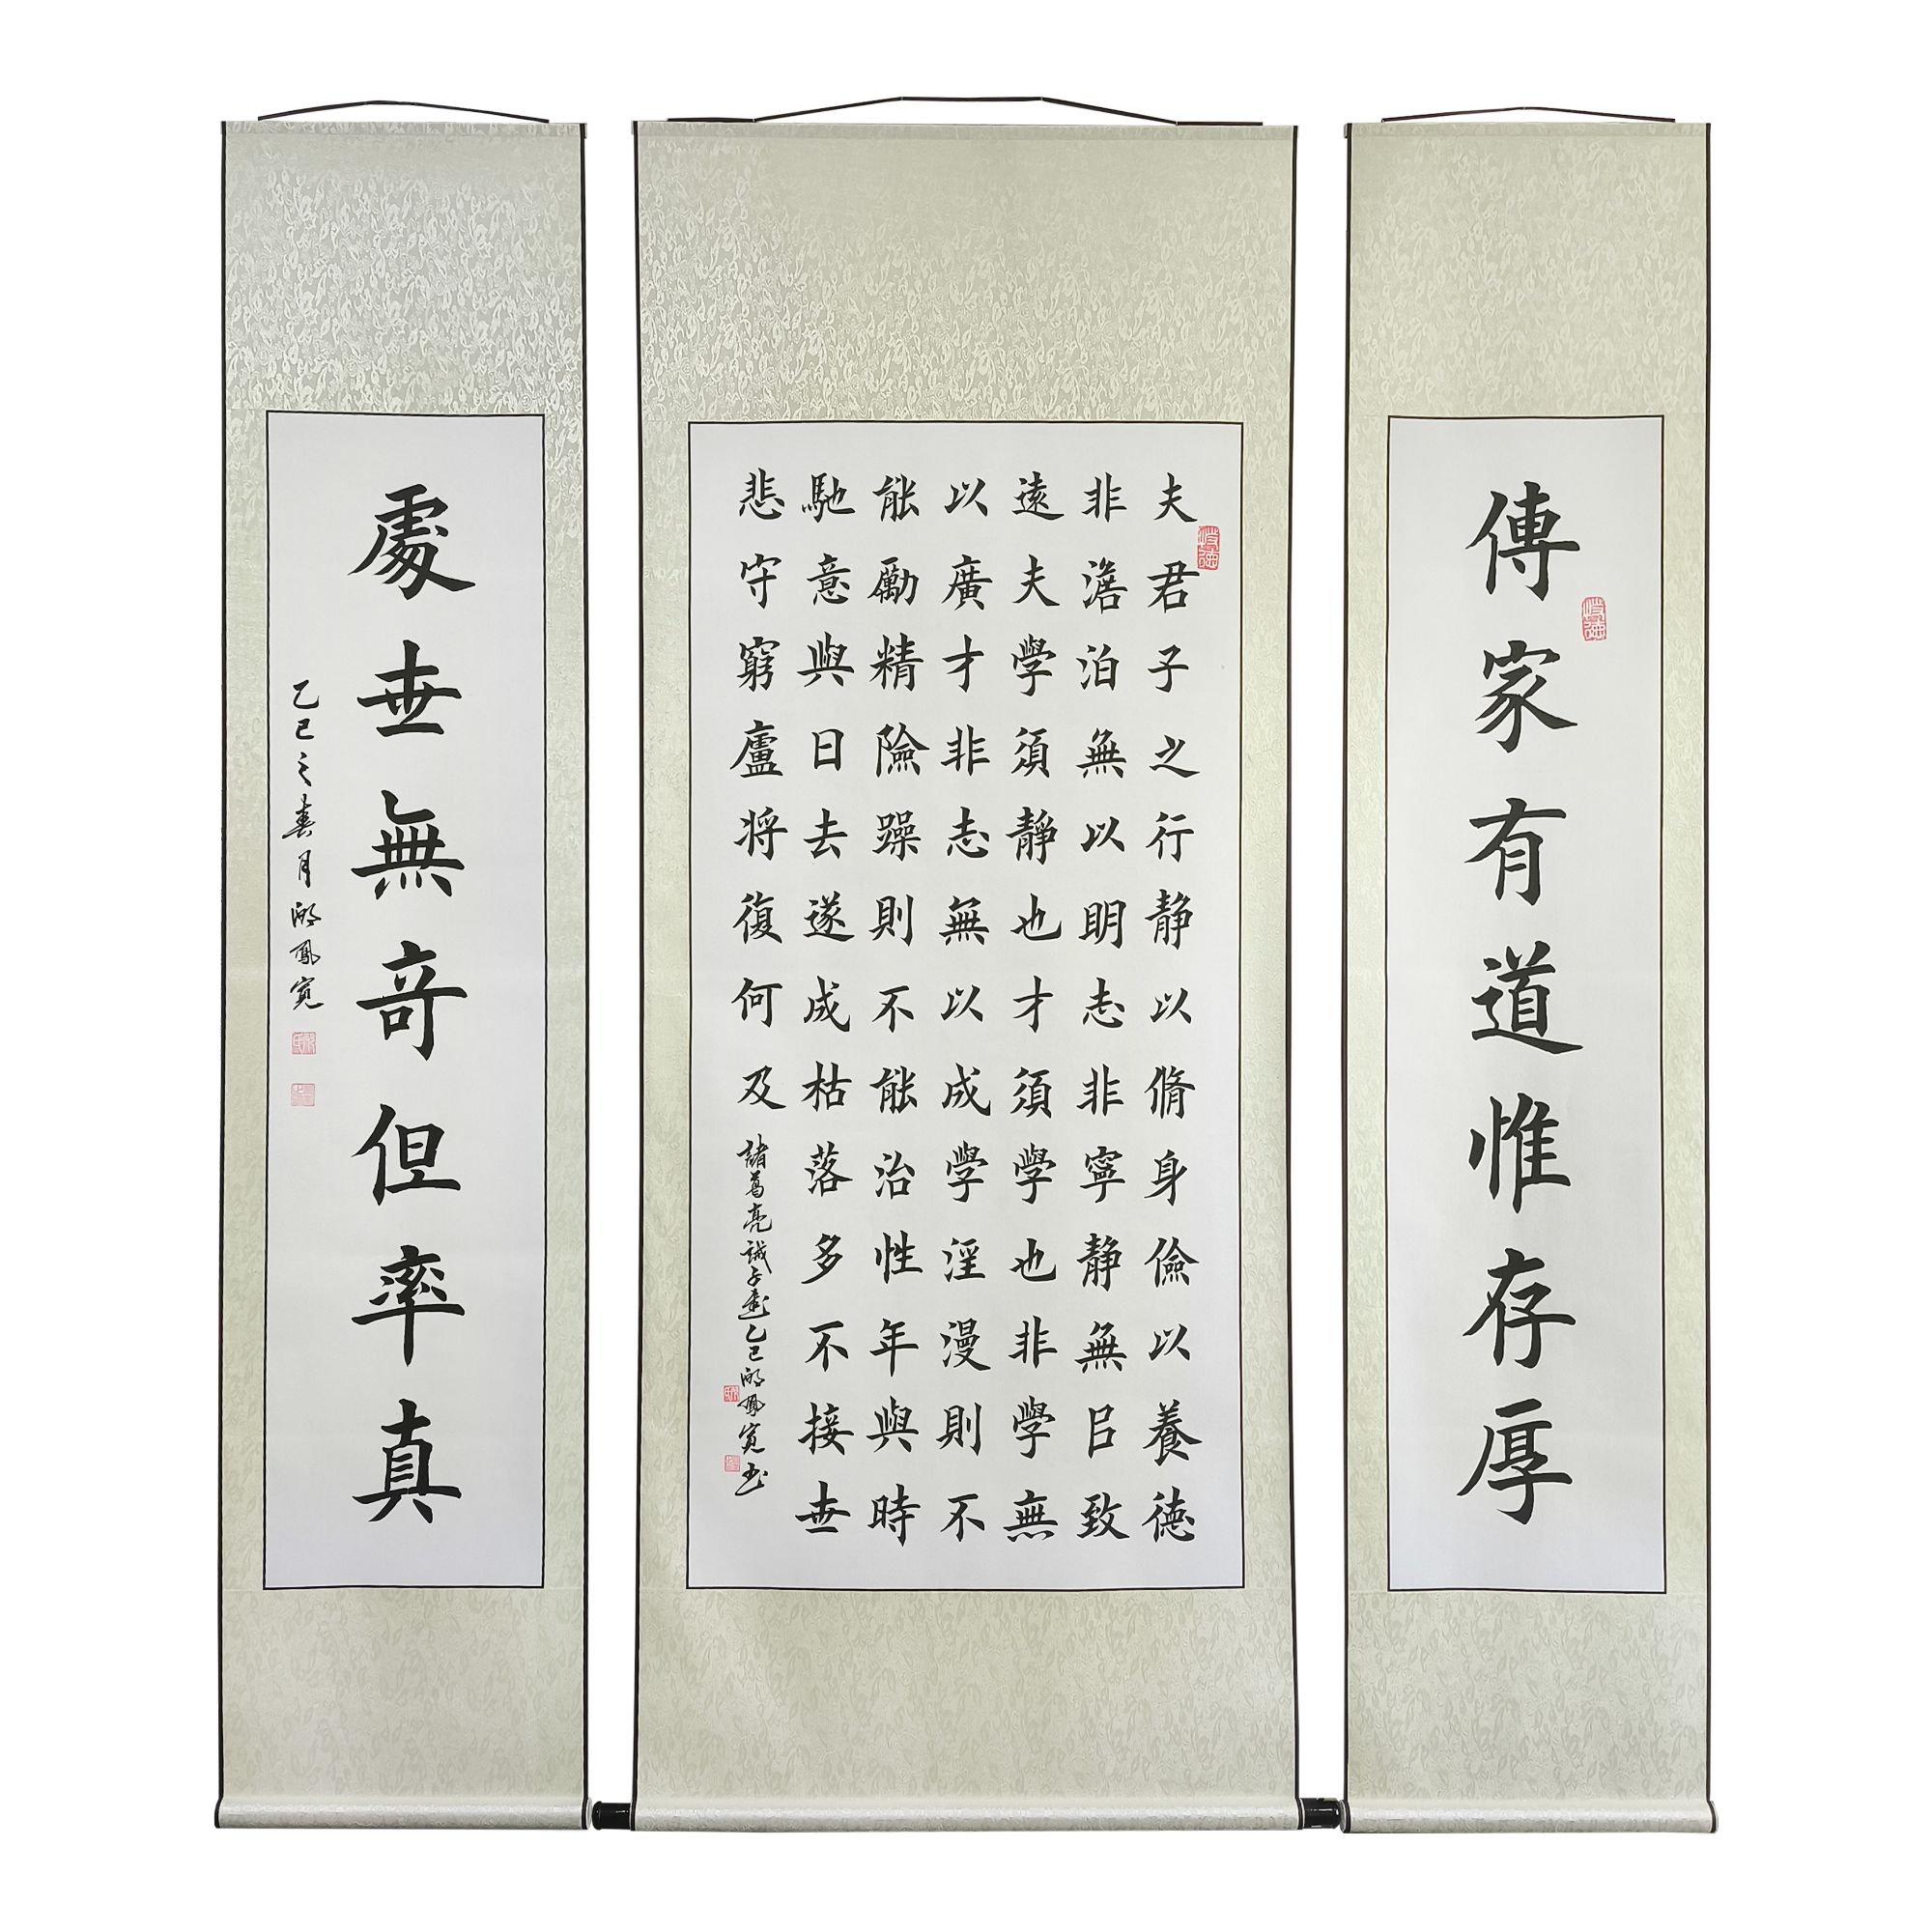 傳家有道惟存厚
夫君子之行静以脩身儉以養德
非澹泊無以明志非寧静無㠯致
遠夫學須静也才須學也非學無
以廣才非志無以成學淫漫則不
能勵精險躁則不能治性年與時
馳意與日去遂成枯落多不接世
悲守窮廬将復何及
諸葛亮誡子書乙巳
鳳寬书
處世無奇但率真
乙巳之春月
鳳寬